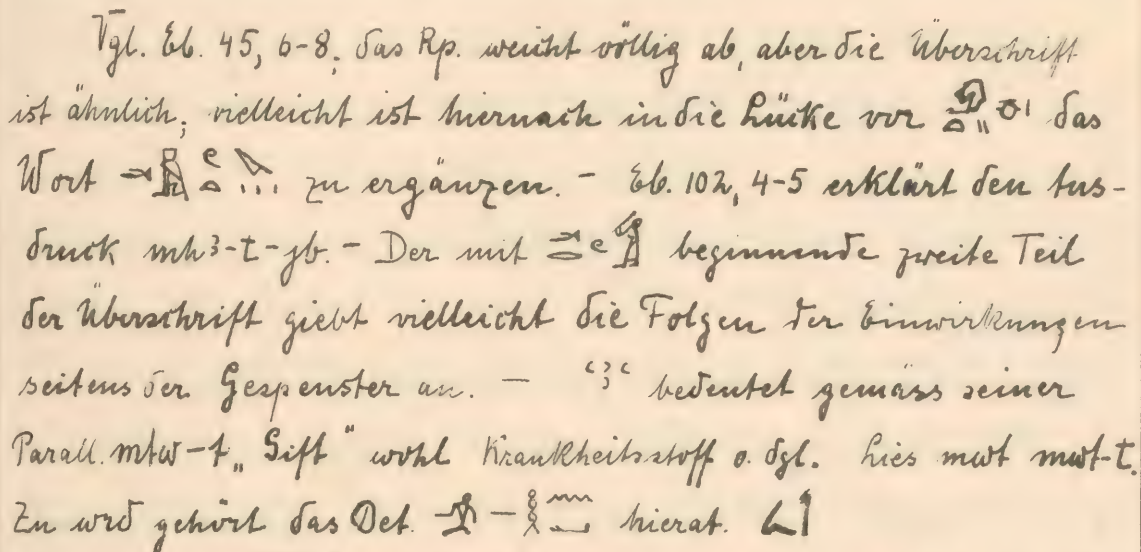 Vgl. Eb. 45, 6-8; das Rp. weicht völlig ab, aber die Überschrift
ist ähnlich; vielleicht ist hiernach in die Lücke vor das
Wort zu ergänzen. - Eb. 102, 4-5 erklärt den Aus-
druck mhꜣ-t-jb. - Der mit beginnende zweite Teil
der Überschrift giebt vielleicht die Folgen der Einwirkungen
seitens der Gespenster an. — ꜥꜣꜥ bedeutet gemäss seiner
Parall. mtw-t „Gift" wohl Krankheitsstoff o. dgl. Lies mwt mwt-t.
Zu wrd gehört das Det. — hierat.